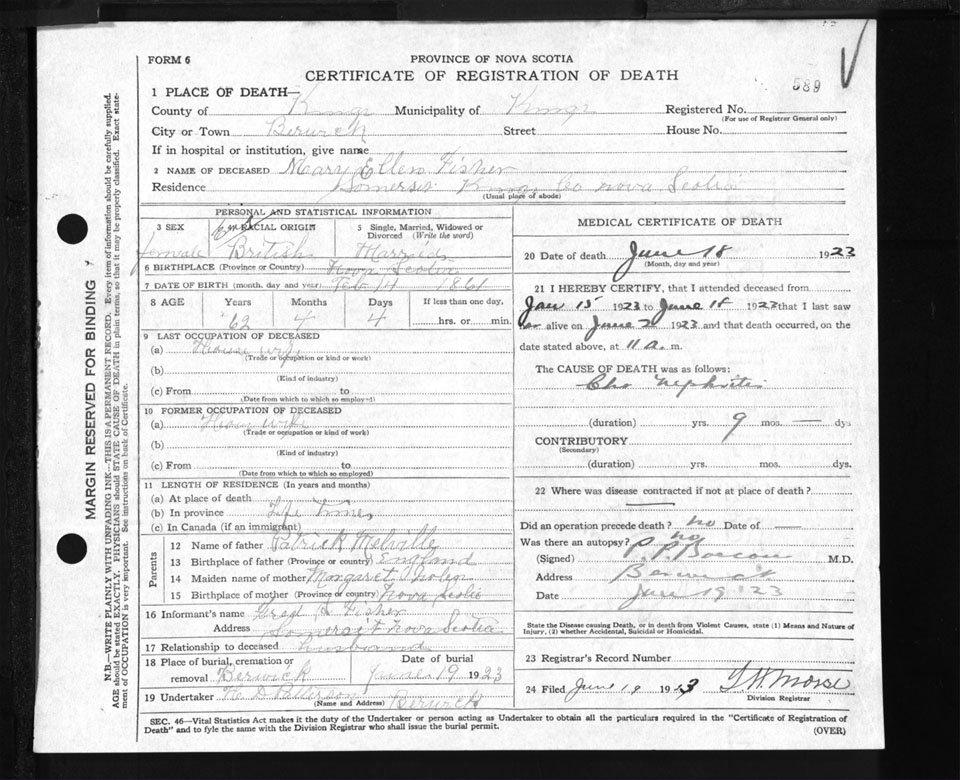 FORM 6
PROVINCE OF NOVA SCOTIA
CERTIFICATE OF REGISTRATION OF DEATH
589
1 PLACE OF DEATH—
County of Kings Municipality of Kings Registered No.
(For use of Registrar General only)
City or Town Berwick Street House No.
If in hospital or institution, give name
2 NAME OF DECEASED Mary Ellen Fisher
Residence Somerset Kings Co Nova Scotia
(Usual place of abode)
PERSONAL AND STATISTICAL INFORMATION
3 SEX 4 RACIAL ORIGIN 5 Single, Married, Widowed or Divorced (Write the word)
female British Married
6 BIRTHPLACE (Province or Country) Nova Scotia
7 DATE OF BIRTH (month, day and year) Feb 14 1861
8 AGE Years Months Days If less than one day,
62 4 4 hrs. or min.
9 LAST OCCUPATION OF DECEASED
(a) House wife
(Trade or occupation or kind or work)
(b)
(Kind of industry)
(c) From to
(Date from which to which so employed)
10 FORMER OCCUPATION OF DECEASED
(a) House wife
(Trade or occupation or kind of work)
(b)
(Kind of industry)
(c) From to
(Date from which to which so employed)
11 LENGTH OF RESIDENCE (In years and months)
(a) At place of death
(b) In province Life time
(c) In Canada (if an immigrant)
Parents
12 Name of father Patrick Melville
13 Birthplace of father (Province or country) England
14 Maiden name of mother Margaret
15 Birthplace of mother (Province or country) Nova Scotia
16 Informant's name Fred S Fisher
Address Somerset Nova Scotia
17 Relationship to deceased husband
18 Place of burial, cremation or removal Berwick Date of burial June 19 1923
19 Undertaker D Paterson Berwick
(Name and Address)
MEDICAL CERTIFICATE OF DEATH
20 Date of death June 18 1923
(Month, day and year)
21 I HEREBY CERTIFY, that I attended deceased from
Jan 15 1923 to June 18 1923 that I last saw
her alive on June 2 1923 and that death occurred, on
the date stated above, at 11 a. m.
The CAUSE OF DEATH was as follows:
Chr Nephritis
(duration) yrs. 9 mos. — dys
CONTRIBUTORY
(Secondary)
(duration) yrs. mos. dys.
22 Where was disease contracted if not at place of death?
—
Did an operation precede death? no Date of —
Was there an autopsy? no
(Signed) M.D.
Address Berwick
Date June 19 '23
State the Disease causing Death, or in death from Violent Causes, state (1) Means and Nature of
Injury, (2) whether Accidental, Suicidal or Homicidal.
23 Registrar's Record Number
24 Filed June 19 1923 Morse
Division Registrar
SEC. 46—Vital Statistics Act makes it the duty of the Undertaker or person acting as Undertaker to obtain all the particulars required in the "Certificate of Registration of
Death" and to fyle the same with the Division Registrar who shall issue the burial permit.
(OVER)
MARGIN RESERVED FOR BINDING
N.B.—WRITE PLAINLY WITH UNFADING INK—THIS IS A PERMANENT RECORD. Every item of information should be carefully supplied.
AGE should be stated EXACTLY. PHYSICIANS should STATE CAUSE OF DEATH in plain terms, so that it may be properly classified. Exact state-
ment of OCCUPATION is very important. See instructions on back of Certificate.